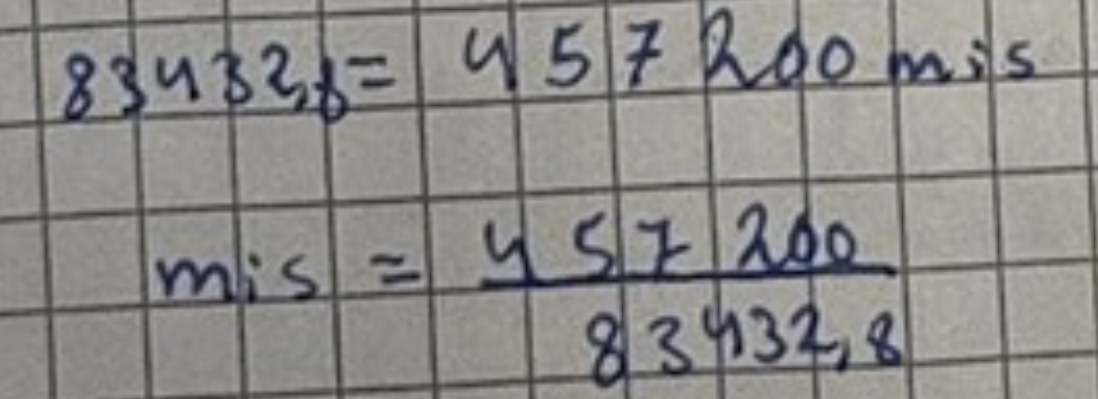 83432,8 = 457200 mis
mis = 457200 / 83432,8